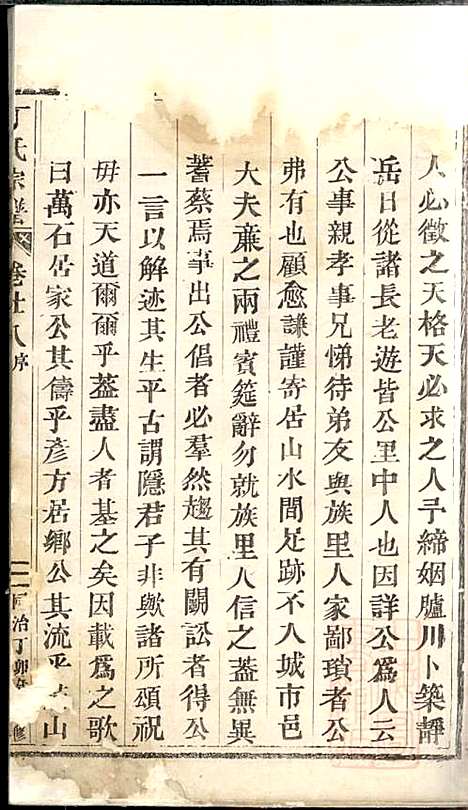 人必徵之天格天必求之人予締姻臚川卜築靜
岳日從諸長老遊皆公里中人也因詳公爲人云
公事親孝事兄悌待弟友與族里人家鄙瑣者公
弗有也顧愈謙謹寄居山水間足跡不入城市邑
大夫蔗之兩禮賓筵辭勿就族里人信之蓋無異
蓍蔡焉事出公倡者必羣然趨其有鬬訟者得公
一言以解迹其生平古謂隱君子非歟諸所頌祝
毋亦天道爾爾乎葢盡人者基之矣因載爲之歌
曰萬石居家公其儔乎彥方居鄉公其流乎山
丁氏宗譜
卷廿八序
二
同治丁卯
修